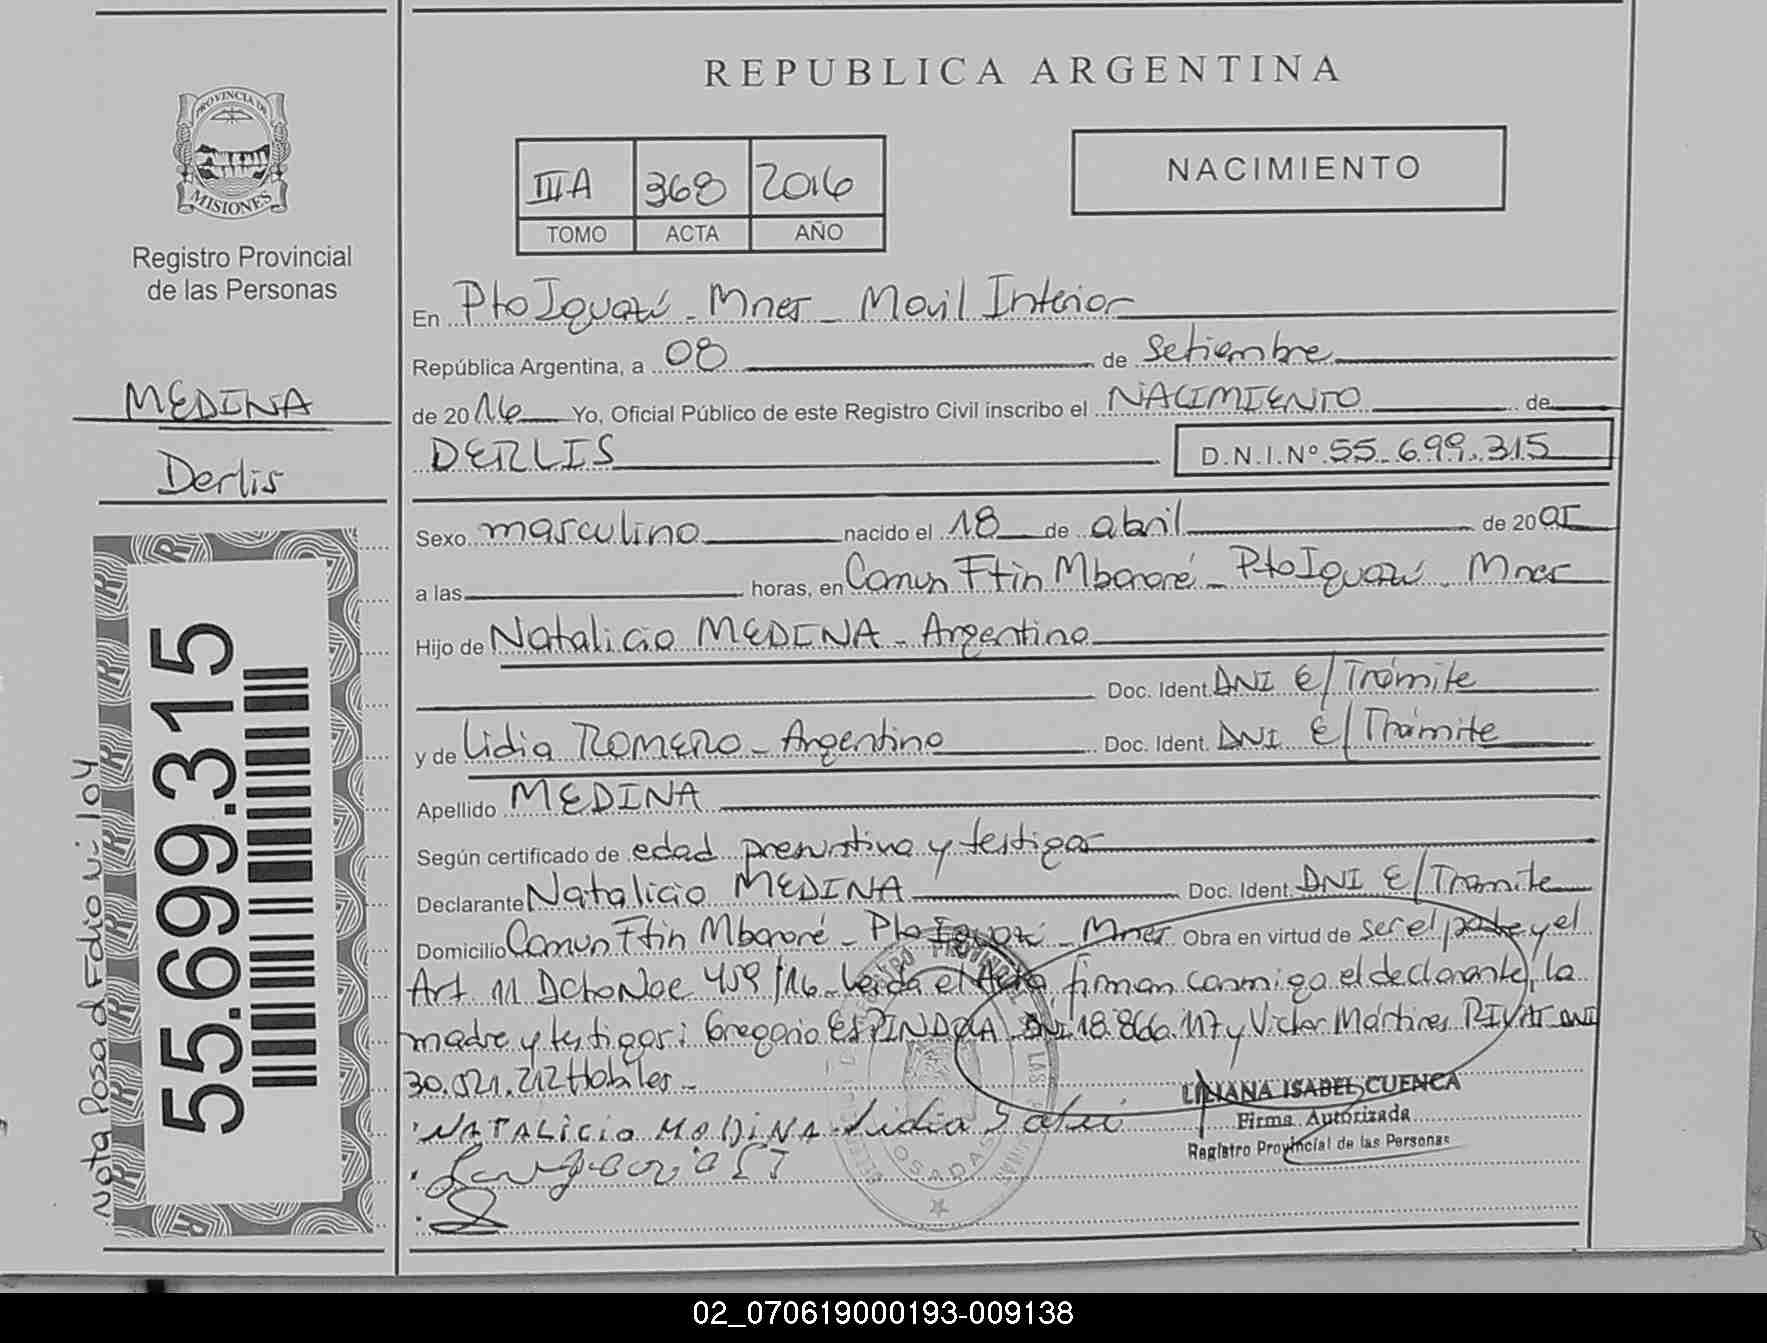 REPUBLICA ARGENTINA
NACIMIENTO
III A 368 2016
TOMO ACTA AÑO
PROVINCIA DE
MISIONES
Registro Provincial
de las Personas
MEDINA
Derlis
55.699.315
Nota Posad Folio N: 104
En Pto Iguazú - Mnes - Movil Interior
República Argentina, a 08 de setiembre
de 2016 Yo, Oficial Público de este Registro Civil inscribo el NACIMIENTO de
DERLIS D.N.I.Nº 55.699.315
Sexo masculino nacido el 18 de abril de 20
a las horas, en Comun Ftin Mbororé - Pto Iguazú - Mnes
Hijo de Natalicio MEDINA - Argentino
Doc. Ident. DNI E/Trámite
y de Lidia ROMERO - Argentina Doc. Ident. DNI E/Trámite
Apellido MEDINA
Según certificado de edad presuntiva y testigos
Declarante Natalicio MEDINA Doc. Ident. DNI E/Tramite
Domicilio Comun Ftin Mbororé - Pto Iguazú - Mnes Obra en virtud de ser el padre y el
Art 11 Dcto Nac 459/16 - Leida el Acta, firman conmigo el declarante, la
madre y testigos: Gregorio ESPINDOLA DNI 18.866.117 y Victor Martines DNI
30.521.212 Habiles -
NATALICIO MEDINA Lidia
LILIANA ISABEL CUENCA
Firma Autorizada
Registro Provincial de las Personas
POSADAS
02_070619000193-009138